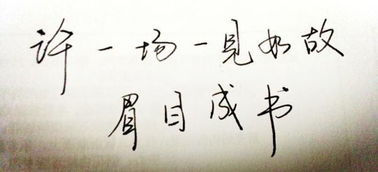 许一场一见如故
眉目成书